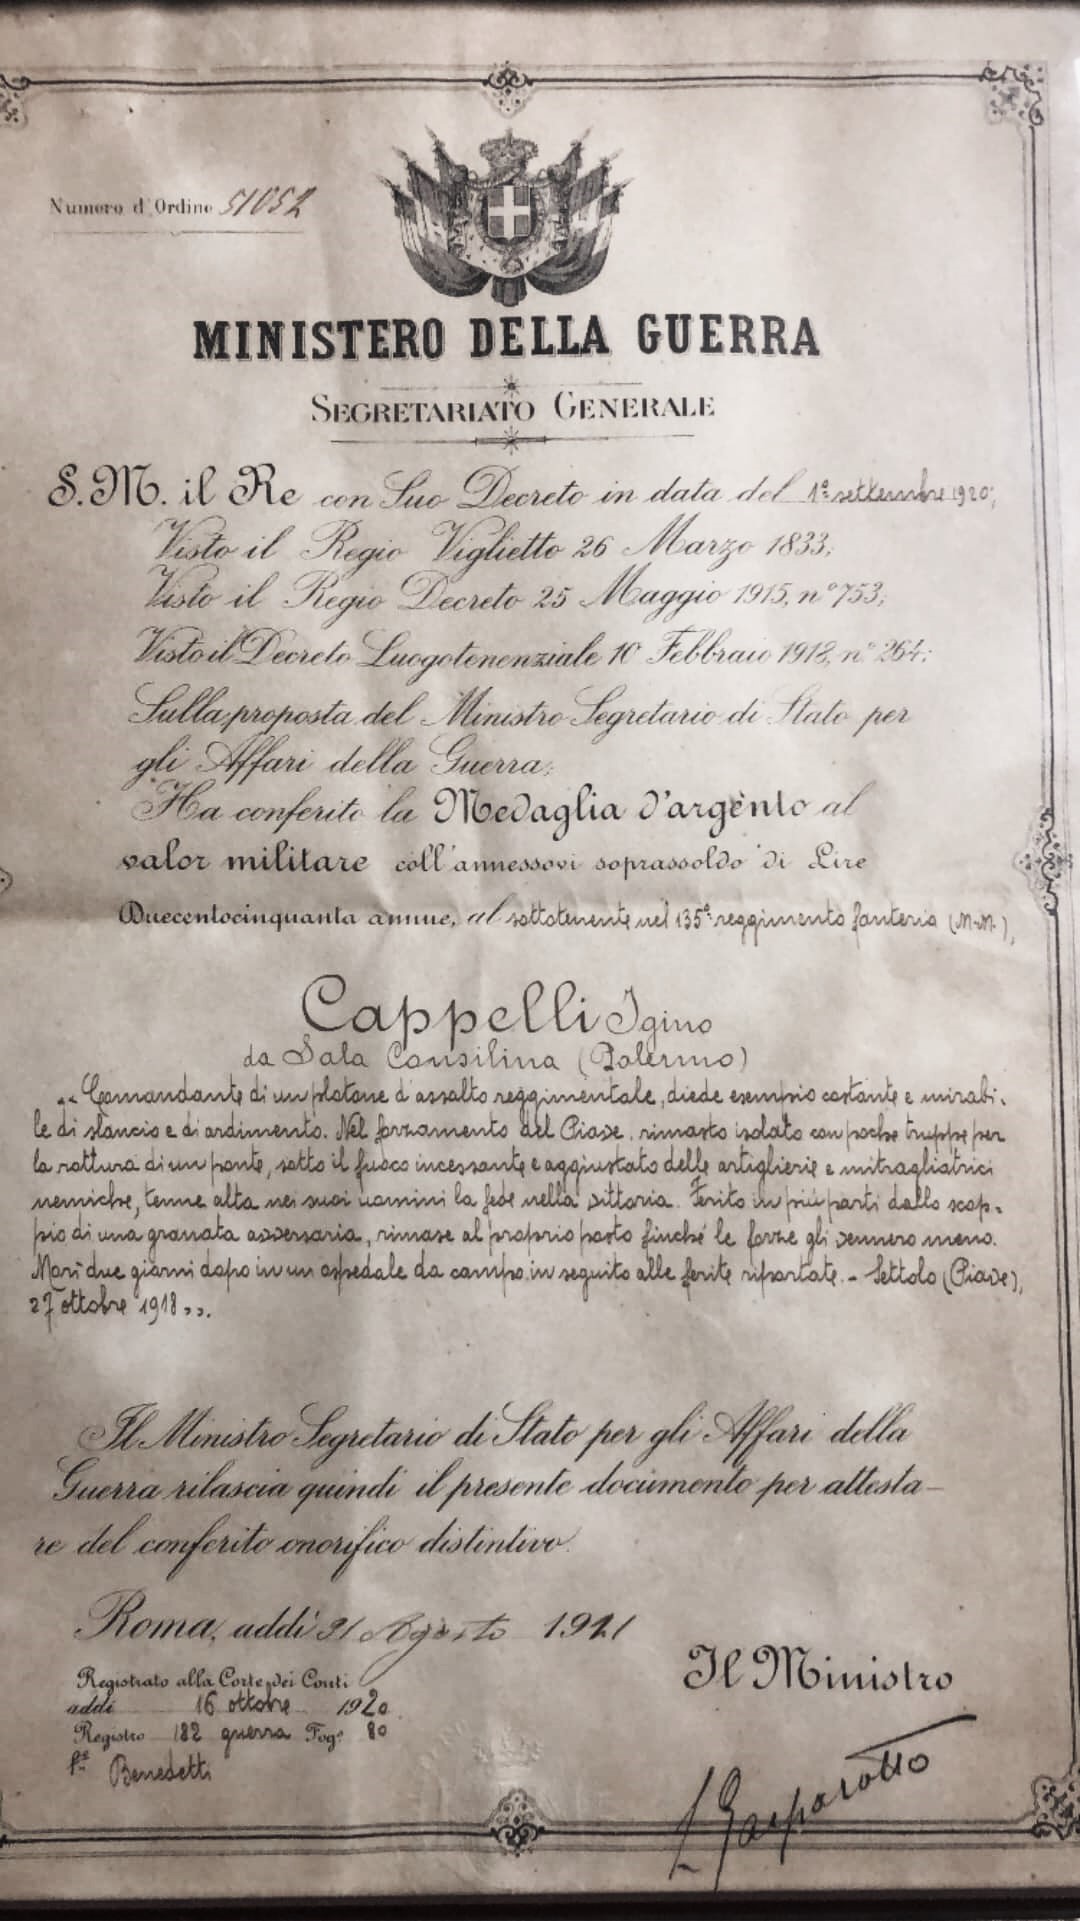 Numero d'Ordine 51052
MINISTERO DELLA GUERRA
SEGRETARIATO GENERALE
S. M. il Re con Suo Decreto in data del 1º settembre 1920;
Visto il Regio Viglietto 26 Marzo 1833;
Visto il Regio Decreto 25 Maggio 1915, nº 753;
Visto il Decreto Luogotenenziale 10 Febbraio 1918, nº 264;
Sulla proposta del Ministro Segretario di Stato per
gli Affari della Guerra;
Ha conferito la Medaglia d'argento al
valor militare coll'annessovi soprassoldo di Lire
Duecentocinquanta annue, al sottotenente nel 135º reggimento fanteria (M.M.),
Cappelli Igino
da Sala Consilina (Palermo)
"Comandante di un plotone d'assalto reggimentale, diede esempio costante e mirabi-
le di slancio e di ardimento. Nel forzamento del Piave, rimasto isolato con poche truppe per
la rottura di un ponte, sotto il fuoco incessante e aggiustato delle artiglierie e mitragliatrici
nemiche, tenne alta nei suoi uomini la fede nella vittoria. Ferito in più parti dallo scop-
pio di una granata avversaria, rimase al proprio posto finchè le forze gli vennero meno.
Morì due giorni dopo in un ospedale da campo, in seguito alle ferite riportate. - Settolo (Piave),
27 ottobre 1918".
Il Ministro Segretario di Stato per gli Affari della
Guerra rilascia quindi il presente documento per attesta-
re del conferito onorifico distintivo.
Roma, addì 31 Agosto 1921
Il Ministro
Registrato alla Corte dei Conti
addì 16 ottobre 1920
Registro 182 guerra Fogº 80
Fº Benedetti
L Gasparotto